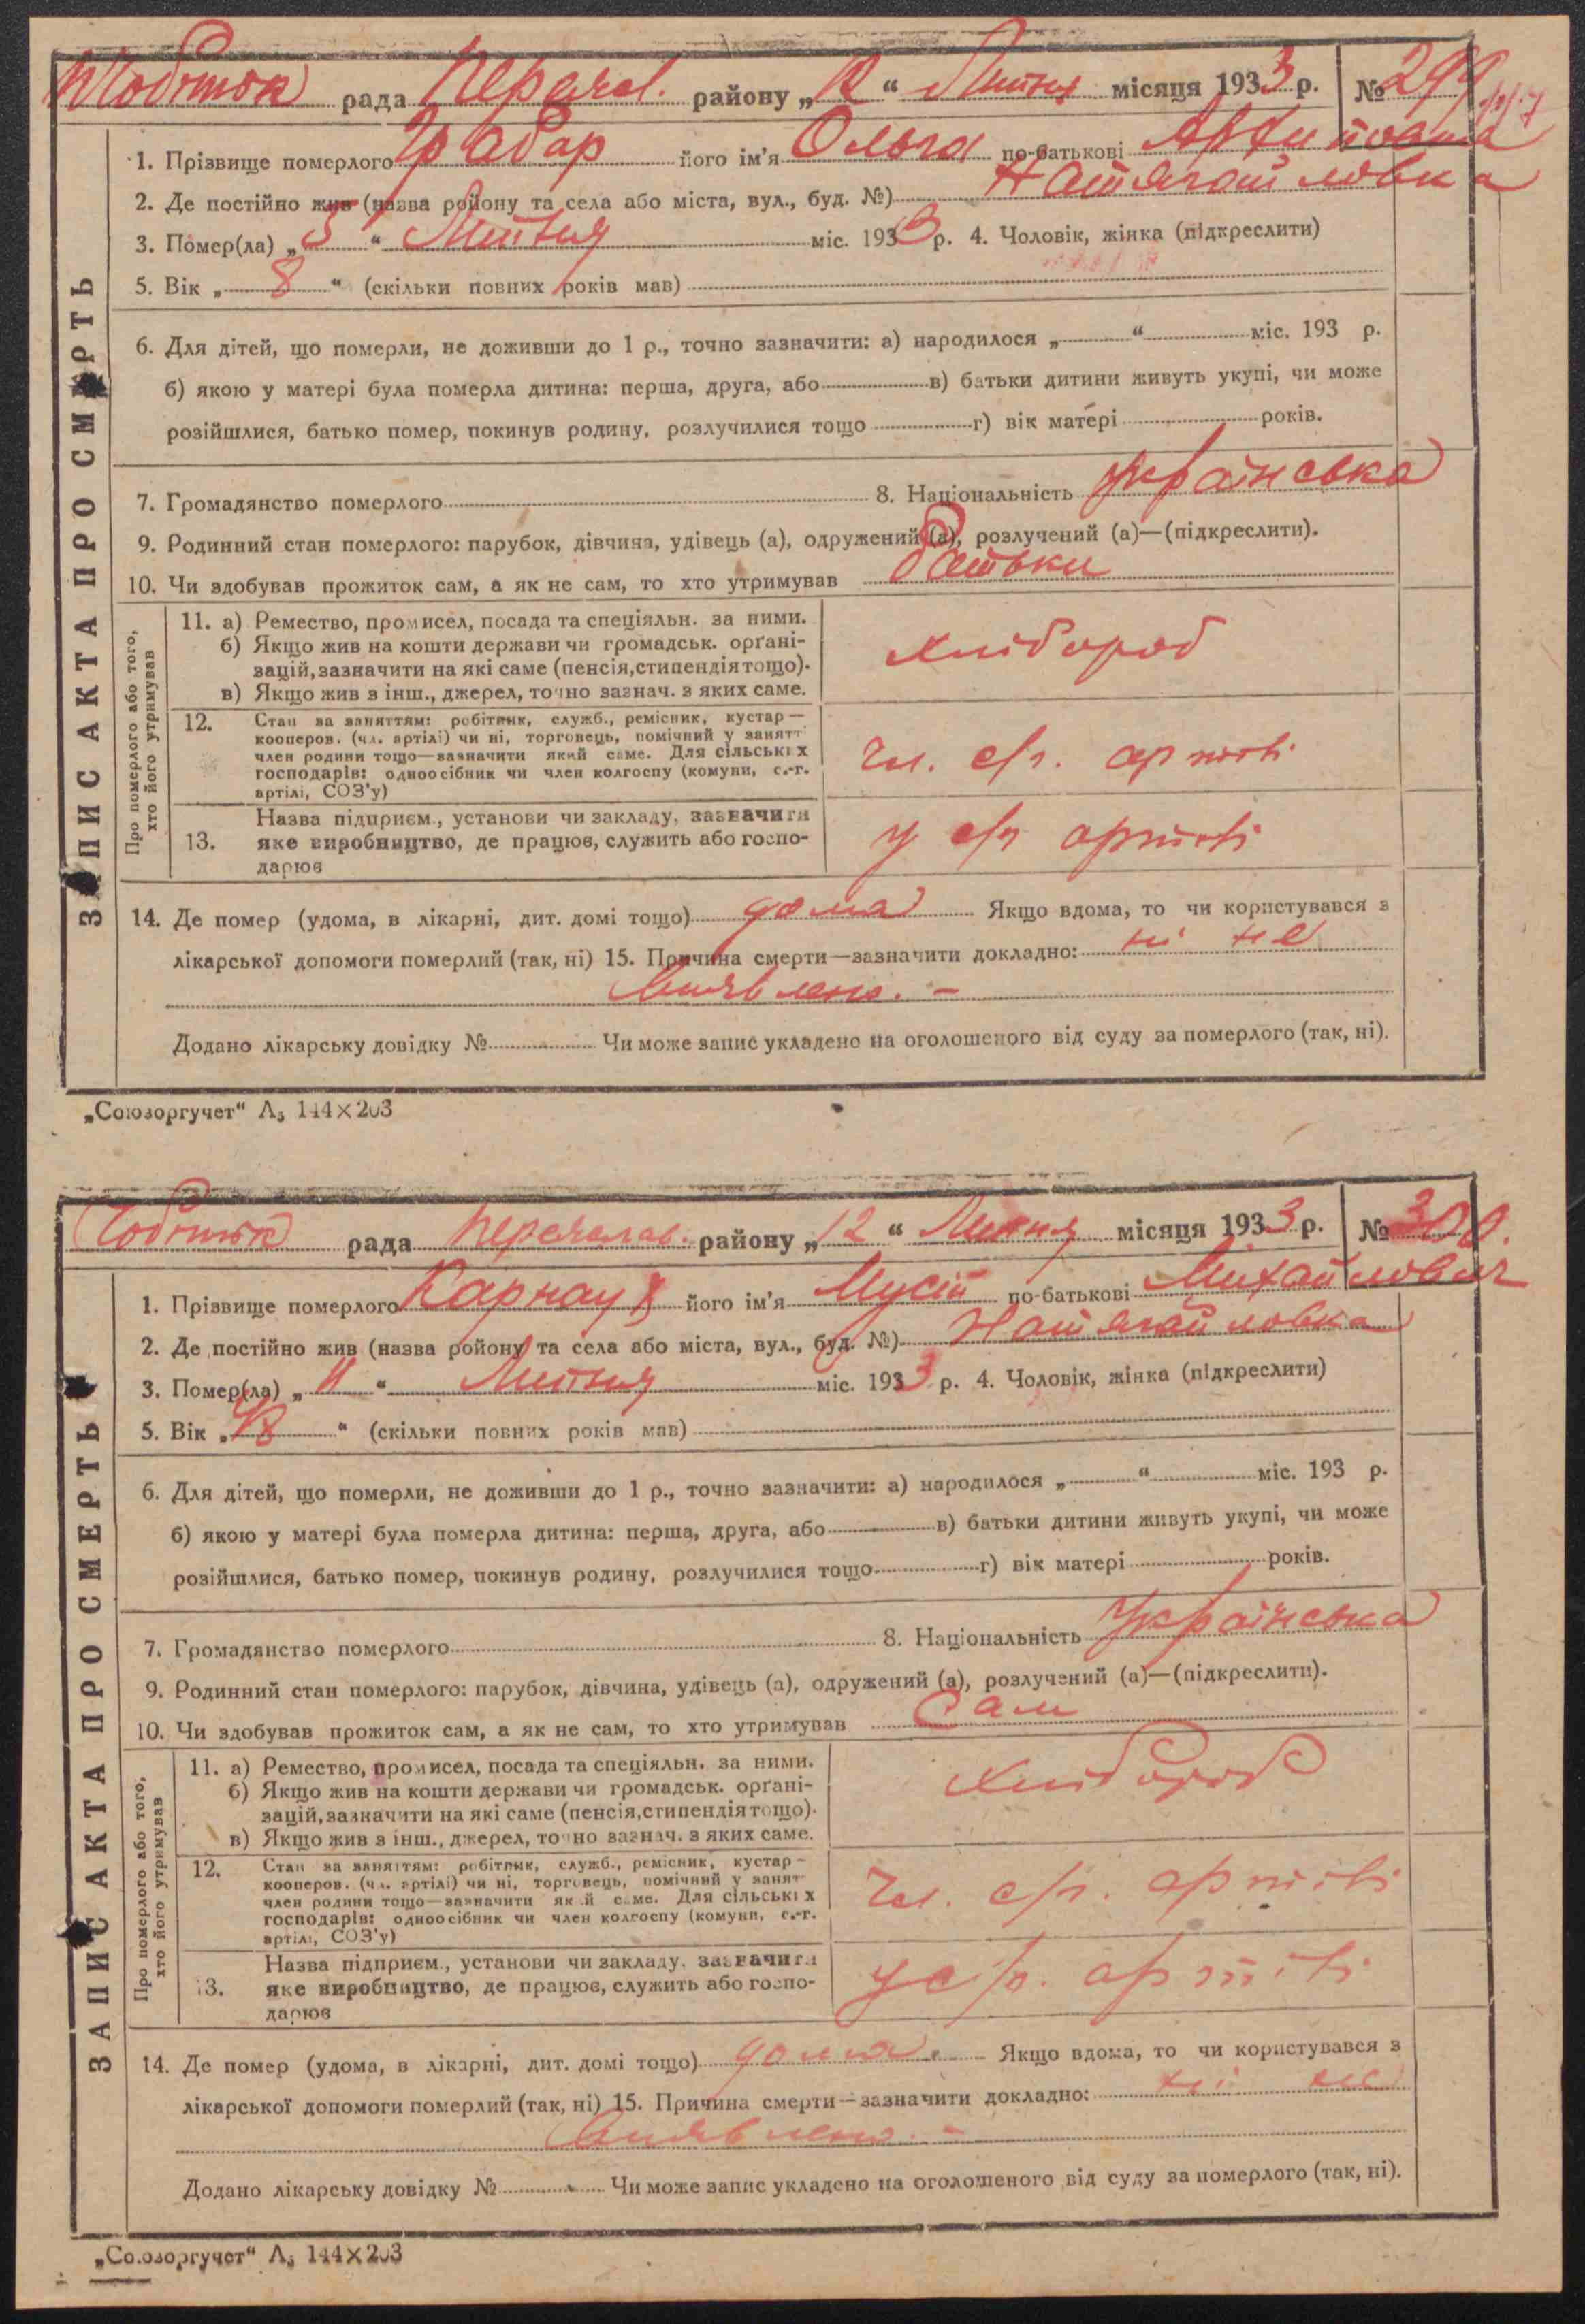 рада Переясл. району „12“ Липня місяця 1933 р. № 299
1. Прізвище померлого Грабар його ім'я Ольга по-батькові
2. Де постійно жив (назва району та села або міста, вул., буд. №) Натягайловка
3. Помер(ла) „5“ Липня міс. 1933 р. 4. Чоловік, жінка (підкреслити)
5. Вік „8“ (скільки повних років мав)
6. Для дітей, що померли, не доживши до 1 р., точно зазначити: а) народилося „ “ міс. 193 р.
б) якою у матері була померла дитина: перша, друга, або в) батьки дитини живуть укупі, чи може
розійшлися, батько помер, покинув родину, розлучилися тощо г) вік матері років.
7. Громадянство померлого 8. Національність українська
9. Родинний стан померлого: парубок, дівчина, удівець (а), одружений (а), розлучений (а)—(підкреслити).
10. Чи здобував прожиток сам, а як не сам, то хто утримував батьки
ЗАПИС АКТА ПРО СМЕРТЬ
Про померлого або того,
хто його утримував
11. а) Ремество, промисел, посада та спеціяльн. за ними.
б) Якщо жив на кошти держави чи громадськ. орґані-
зацій, зазначити на які саме (пенсія, стипендія тощо).
в) Якщо жив з інш., джерел, точно зазнач. з яких саме.
хлібороб
12. Стан за заняттям: робітник, служб., ремісник, кустар—
кооперов. (чл. артілі) чи ні, торговець, помічний у занятт
член родини тощо—зазначити який саме. Для сільських
господарів: одноосібник чи член колгоспу (комуни, с.-г.
артілі, СОЗ'у)
чл. с/г. артілі
13. Назва підприєм., установи чи закладу, зазначити
яке виробництво, де працює, служить або госпо-
дарює
у с/г артілі
14. Де помер (удома, в лікарні, дит. домі тощо) дома Якщо вдома, то чи користувався з
лікарської допомоги померлий (так, ні) 15. Причина смерти—зазначити докладно: ні не
виявлено. –
Додано лікарську довідку № Чи може запис укладено на оголошеного від суду за померлого (так, ні).
„Союзоргучет“ А₅ 144×203
рада Переяслав. району „12“ Липня місяця 1933 р. № 300.
1. Прізвище померлого Карнаух його ім'я Мусій по-батькові Михайлович
2. Де постійно жив (назва району та села або міста, вул., буд. №) Натягайловка
3. Помер(ла) „11“ Липня міс. 1933 р. 4. Чоловік, жінка (підкреслити)
5. Вік „ “ (скільки повних років мав)
6. Для дітей, що померли, не доживши до 1 р., точно зазначити: а) народилося „ “ міс. 193 р.
б) якою у матері була померла дитина: перша, друга, або в) батьки дитини живуть укупі, чи може
розійшлися, батько помер, покинув родину, розлучилися тощо г) вік матері років.
7. Громадянство померлого 8. Національність українська
9. Родинний стан померлого: парубок, дівчина, удівець (а), одружений (а), розлучений (а)—(підкреслити).
10. Чи здобував прожиток сам, а як не сам, то хто утримував сам
ЗАПИС АКТА ПРО СМЕРТЬ
Про померлого або того,
хто його утримував
11. а) Ремество, промисел, посада та спеціяльн. за ними.
б) Якщо жив на кошти держави чи громадськ. орґані-
зацій, зазначити на які саме (пенсія, стипендія тощо).
в) Якщо жив з інш., джерел, точно зазнач. з яких саме.
хлібороб
12. Стан за заняттям: робітник, служб., ремісник, кустар—
кооперов. (чл. артілі) чи ні, торговець, помічний у занят
член родини тощо—зазначити який саме. Для сільських
господарів: одноосібник чи член колгоспу (комуни, с.-г.
артілі, СОЗ'у)
чл. с/г. артілі
13. Назва підприєм., установи чи закладу, зазначити
яке виробництво, де працює, служить або госпо-
дарює
у с/г. артілі
14. Де помер (удома, в лікарні, дит. домі тощо) дома Якщо вдома, то чи користувався з
лікарської допомоги померлий (так, ні) 15. Причина смерти—зазначити докладно: ні не
виявлено. –
Додано лікарську довідку № Чи може запис укладено на оголошеного від суду за померлого (так, ні).
„Союзоргучет“ А₅ 144×203